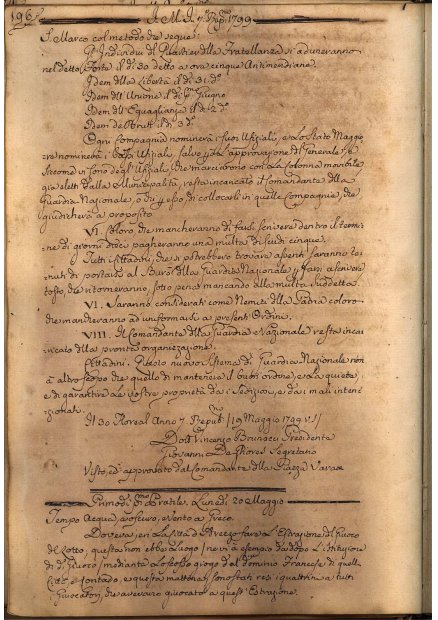 196
A. M. D. 7.º Rep.º 1799
S. Marco col metodo che segue
Gl' Individui del Quartiere della Fratellanza si aduneranno
nel detto Forte il dì 30 detto a ora cinque Antimeridiane.
Idem della Libertà il dì 31. d.º
Idem dell' Unione il dì p.mo Giugno
Idem dell' Eguaglianza il dì 2 d.º
Idem de' il dì 3 d.º
Ogni Compagnia nominerà i suoi Ufiziali, e lo Stato Maggio
re nominerà i Ufiziali salvo l'approvazione del Generale
Siccome vi sono degl' Ufiziali, che marciarono con la Colonna movibile
già eletti dalla Municipalità, resta incaricato il Comandante della
Guardia Nazionale, di collocarli in quelle Compagnie, che
giudicherà a proposito
V. Coloro, che mancheranno di farsi scrivere dentro il termi=
=ne di giorni dieci pagheranno una multa di scudi cinque.
Tutti i Cittadini, che si potrebbero trovare assenti saranno te=
nuti di portarsi al Burò della Guardia Nazionale p farsi ascrivere
tosto, che ritorneranno, sotto pena mancando alla multa suddetta.
VI. Saranno considerati come Nemici della Patria coloro
che mancheranno ad uniformarsi a' presenti Ordini.
VIII. Il Comandante della Guardia Nazionale resta inca=
ricato della pronta organizzazione.
Cittadini. Questo nuovo Sistema di Guardia Nazionale non
à altro scopo che quello di mantenere il buon ordine, e la quiete,
e di garantire le vostre proprietà da i Sediziosi, e da i mali inten=
zionati.
Il 30 Floreal Anno 7. Repub.no /19 Maggio 1799 v. s./
Dott. Vincenzo Brunacci Presidente
Giovanni Segretario
Visto, ed approvato dal Comandante della Piazza
Primodì p.mo Pratile. Lunedì 20 Maggio
Tempo Acqua, oscuro, e Vento a Greco.
Doveva, en la Città d'Arezzo farsi l'Estrazione del Giuoco
del Lotto, questa non ebbe luogo
di d.º Giuoco mediante lo scoppio del dominio Francese di quella
Città e Contado, e questa mattina sono stati resi i quattrini a tutti
i Giuocatori, che avevano giuocato a quest' Estrazione.